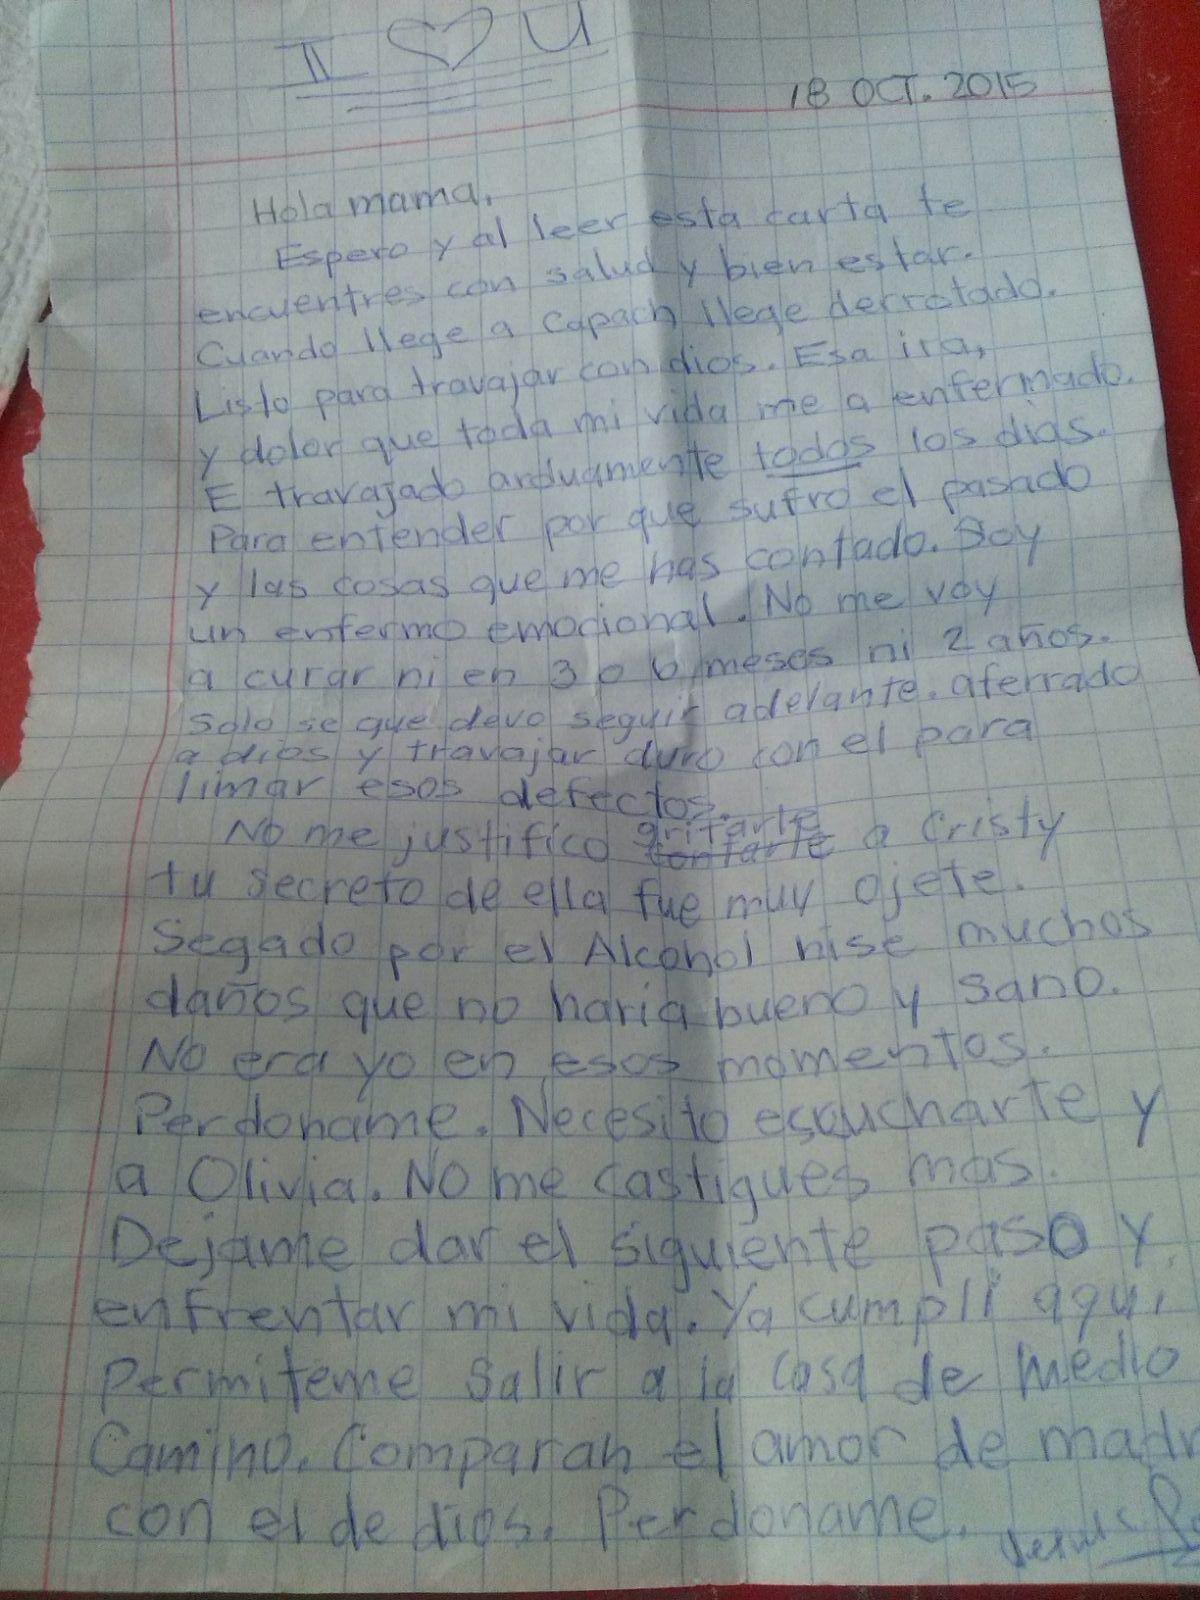 I ♡ U
18 OCT. 2015
Hola mama,
Espero y al leer esta carta te
encuentres con salud y bien estar.
Cuando llege a Capach llege derrotado.
Listo para travajar con dios. Esa ira,
y dolor que toda mi vida me a enfermado.
E travajado arduamente todos los dias.
Para entender por que sufro el pasado
y las cosas que me has contado. Soy
un enfermo emocional. No me voy
a curar ni en 3 o 6 meses ni 2 años.
Solo se que devo seguir adelante. aferrado
a dios y travajar duro con el para
limar esos defectos.
No me justifico gritarle contarle a Cristy
tu secreto de ella fue muy ojete.
Segado por el Alcohol hise muchos
daños que no haria bueno y sano.
No era yo en esos momentos.
Perdoname. Necesito escucharte y
a Olivia. No me castigues mas.
Dejame dar el siguiente paso y
enfrentar mi vida. Ya cumpli aqui,
Permiteme salir a la casa de medio
Camino. Comparan el amor de madr
con el de dios. Perdoname.